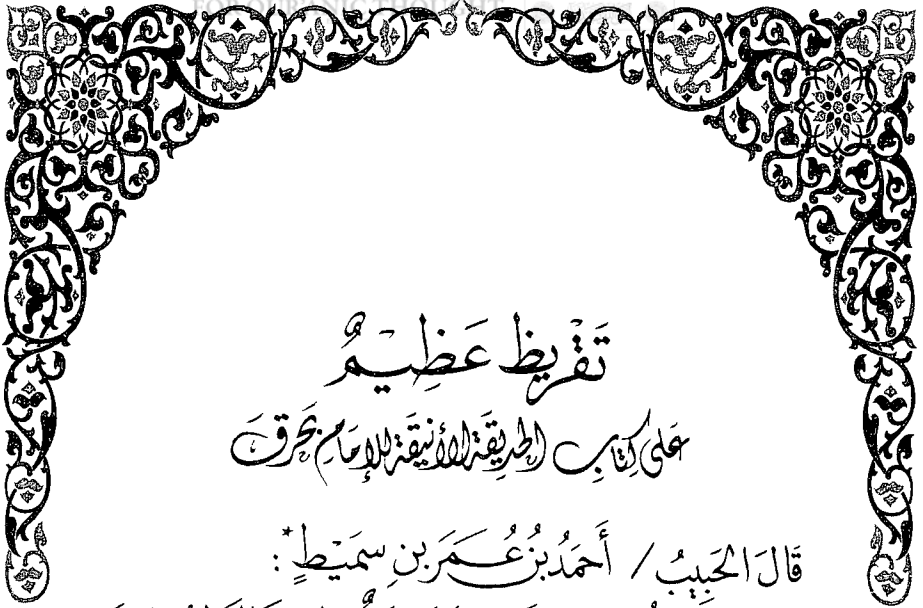 تَقْرِيظ عَظِيمٌ
عَلَى كِتَابِ الحَدِيقَةِ الأَنِيقَةِ لِلإِمَامِ بَحْرَقَ
قَالَ الحَبِيبُ / أَحْمَدُ بْنُ عُمَرَ بنِ سُمَيْطٍ* :